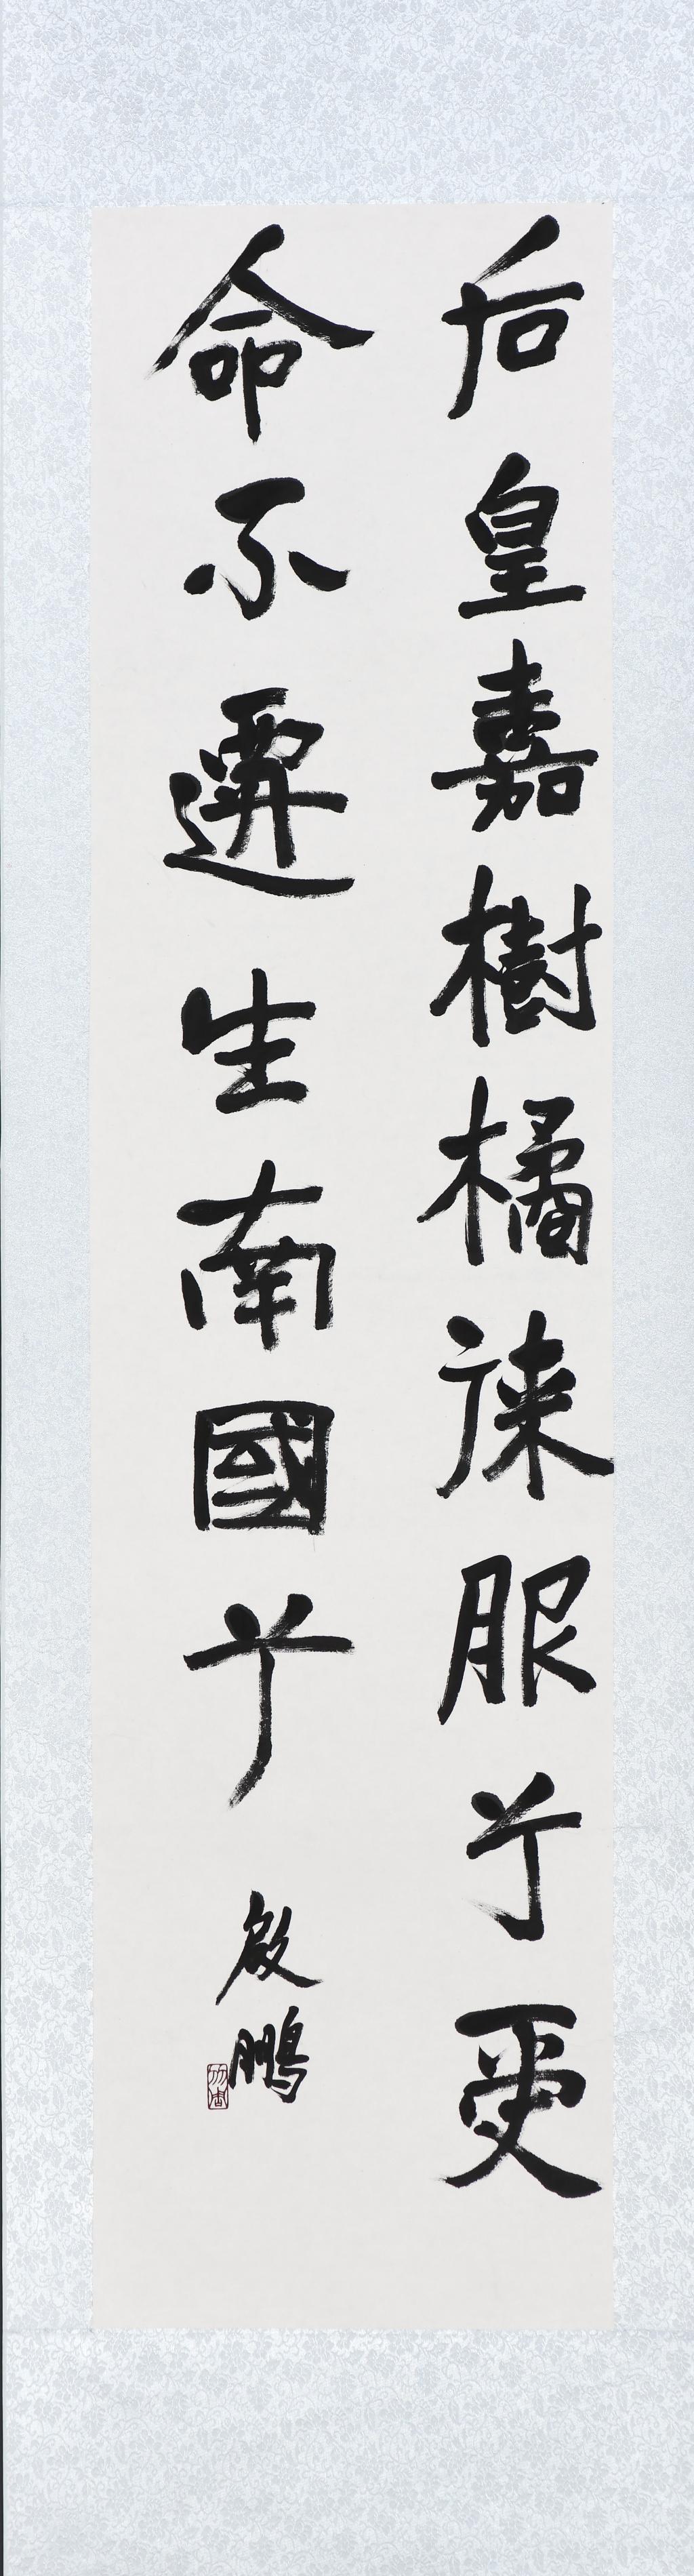 后皇嘉樹橘徠服兮受
命不遷生南國兮
啟鵬